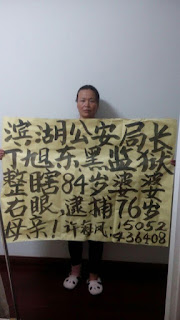 滨湖公安局长
丁旭东黑监狱
整瞎84岁婆婆
右眼.逮捕76岁
母亲!许海凤.15052
436408